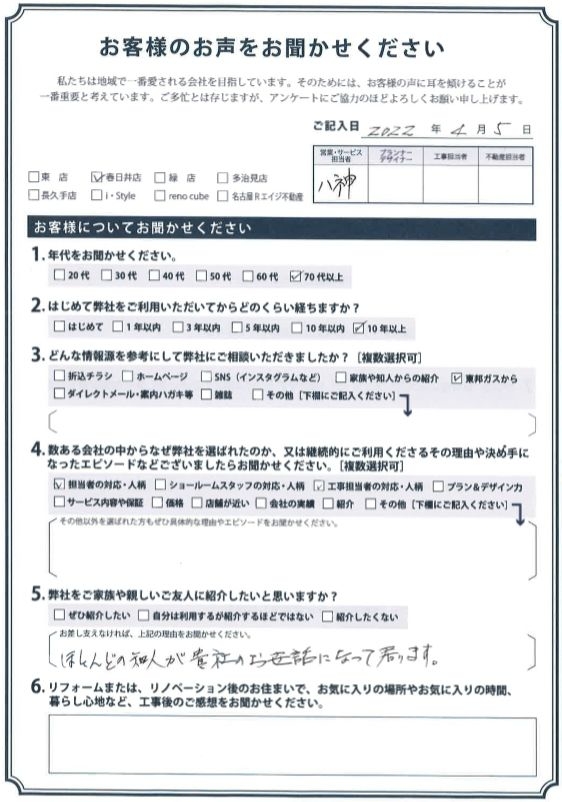 お客様のお声をお聞かせください
私たちは地域で一番愛される会社を目指しています。そのためには、お客様の声に耳を傾けることが
一番重要と考えています。ご多忙とは存じますが、アンケートにご協力のほどよろしくお願い申し上げます。
ご記入日 2022 年 4 月 5 日
営業・サービス担当者 プランナーデザイナー 工事担当者 不動産担当者
八神
□東 店 ☑春日井店 □緑 店 □多治見店
□長久手店 □i・Style □reno cube □名古屋Rエイジ不動産
お客様についてお聞かせください
1. 年代をお聞かせください。
□20代 □30代 □40代 □50代 □60代 ☑70代以上
2. はじめて弊社をご利用いただいてからどのくらい経ちますか？
□はじめて □1年以内 □3年以内 □5年以内 □10年以内 ☑10年以上
3. どんな情報源を参考にして弊社にご相談いただきましたか？［複数選択可］
□折込チラシ □ホームページ □SNS（インスタグラムなど） □家族や知人からの紹介 ☑東邦ガスから
□ダイレクトメール・案内ハガキ等 □雑誌 □その他［下欄にご記入ください］
4. 数ある会社の中からなぜ弊社を選ばれたのか、又は継続的にご利用くださるその理由や決め手に
なったエピソードなどございましたらお聞かせください。［複数選択可］
☑担当者の対応・人柄 □ショールームスタッフの対応・人柄 ☑工事担当者の対応・人柄 □プラン&デザイン力
□サービス内容や保証 □価格 □店舗が近い □会社の実績 □紹介 □その他［下欄にご記入ください］
その他以外を選ばれた方もぜひ具体的な理由やエピソードをお聞かせください。
5. 弊社をご家族や親しいご友人に紹介したいと思いますか？
□ぜひ紹介したい □自分は利用するが紹介するほどではない □紹介したくない
お差し支えなければ、上記の理由をお聞かせください。
ほとんどの知人が貴社のお世話になって居ります。
6. リフォームまたは、リノベーション後のお住まいで、お気に入りの場所やお気に入りの時間、
暮らし心地など、工事後のご感想をお聞かせください。